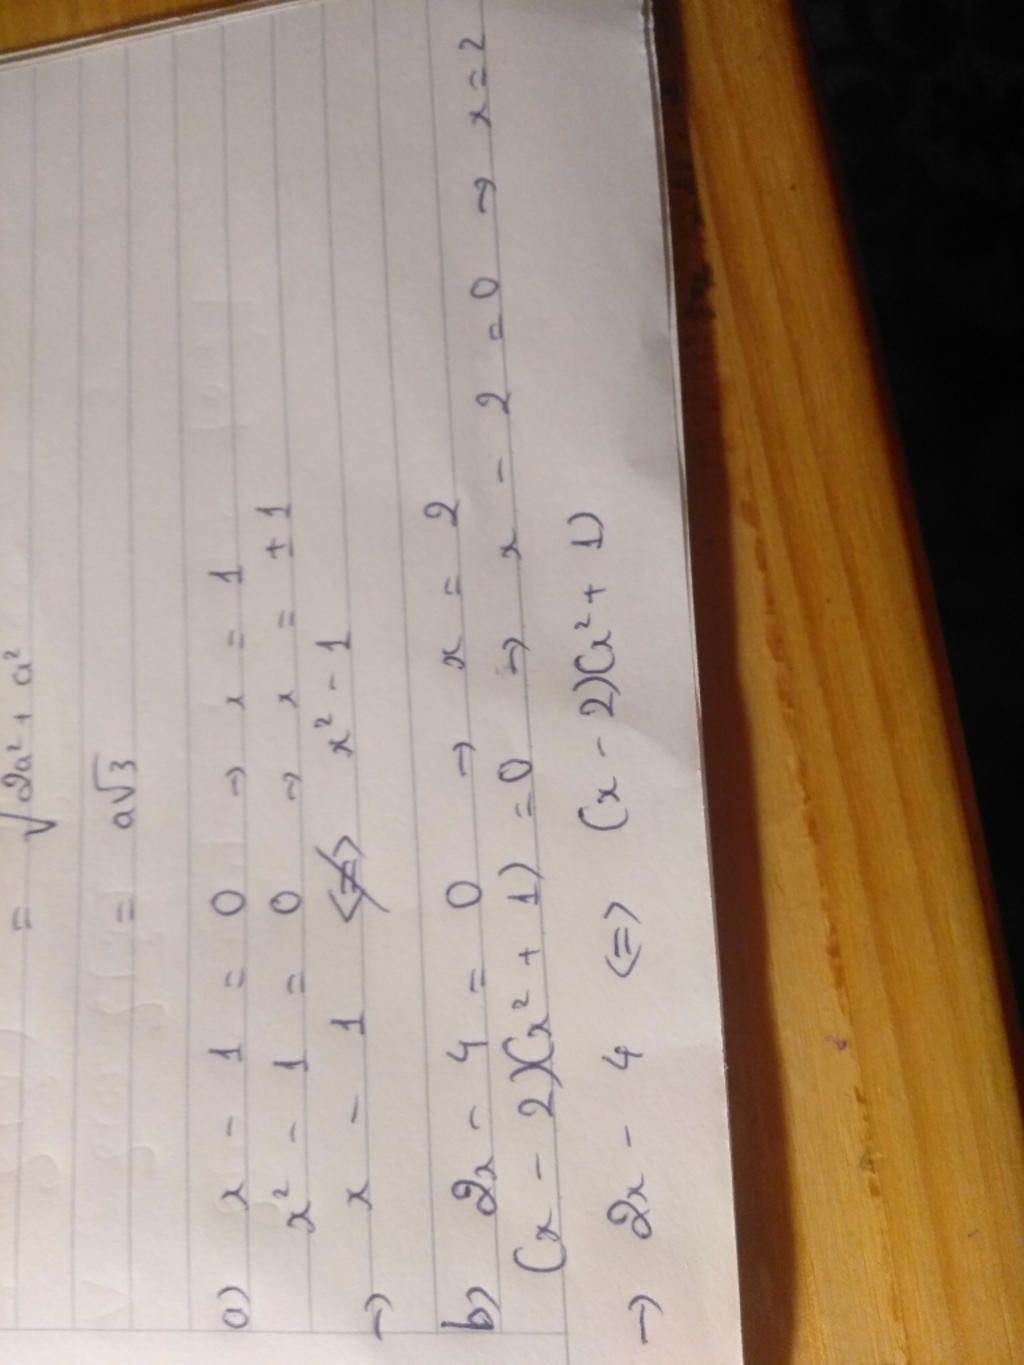 = √2a² + a²
= a√3
a) x - 1 = 0 → x = 1
x² - 1 = 0 → x = ±1
→ x - 1 <≠> x² - 1
b) 2x - 4 = 0 → x = 2
(x - 2)(x² + 1) = 0 → x - 2 = 0 → x = 2
→ 2x - 4 <=> (x - 2)(x² + 1)